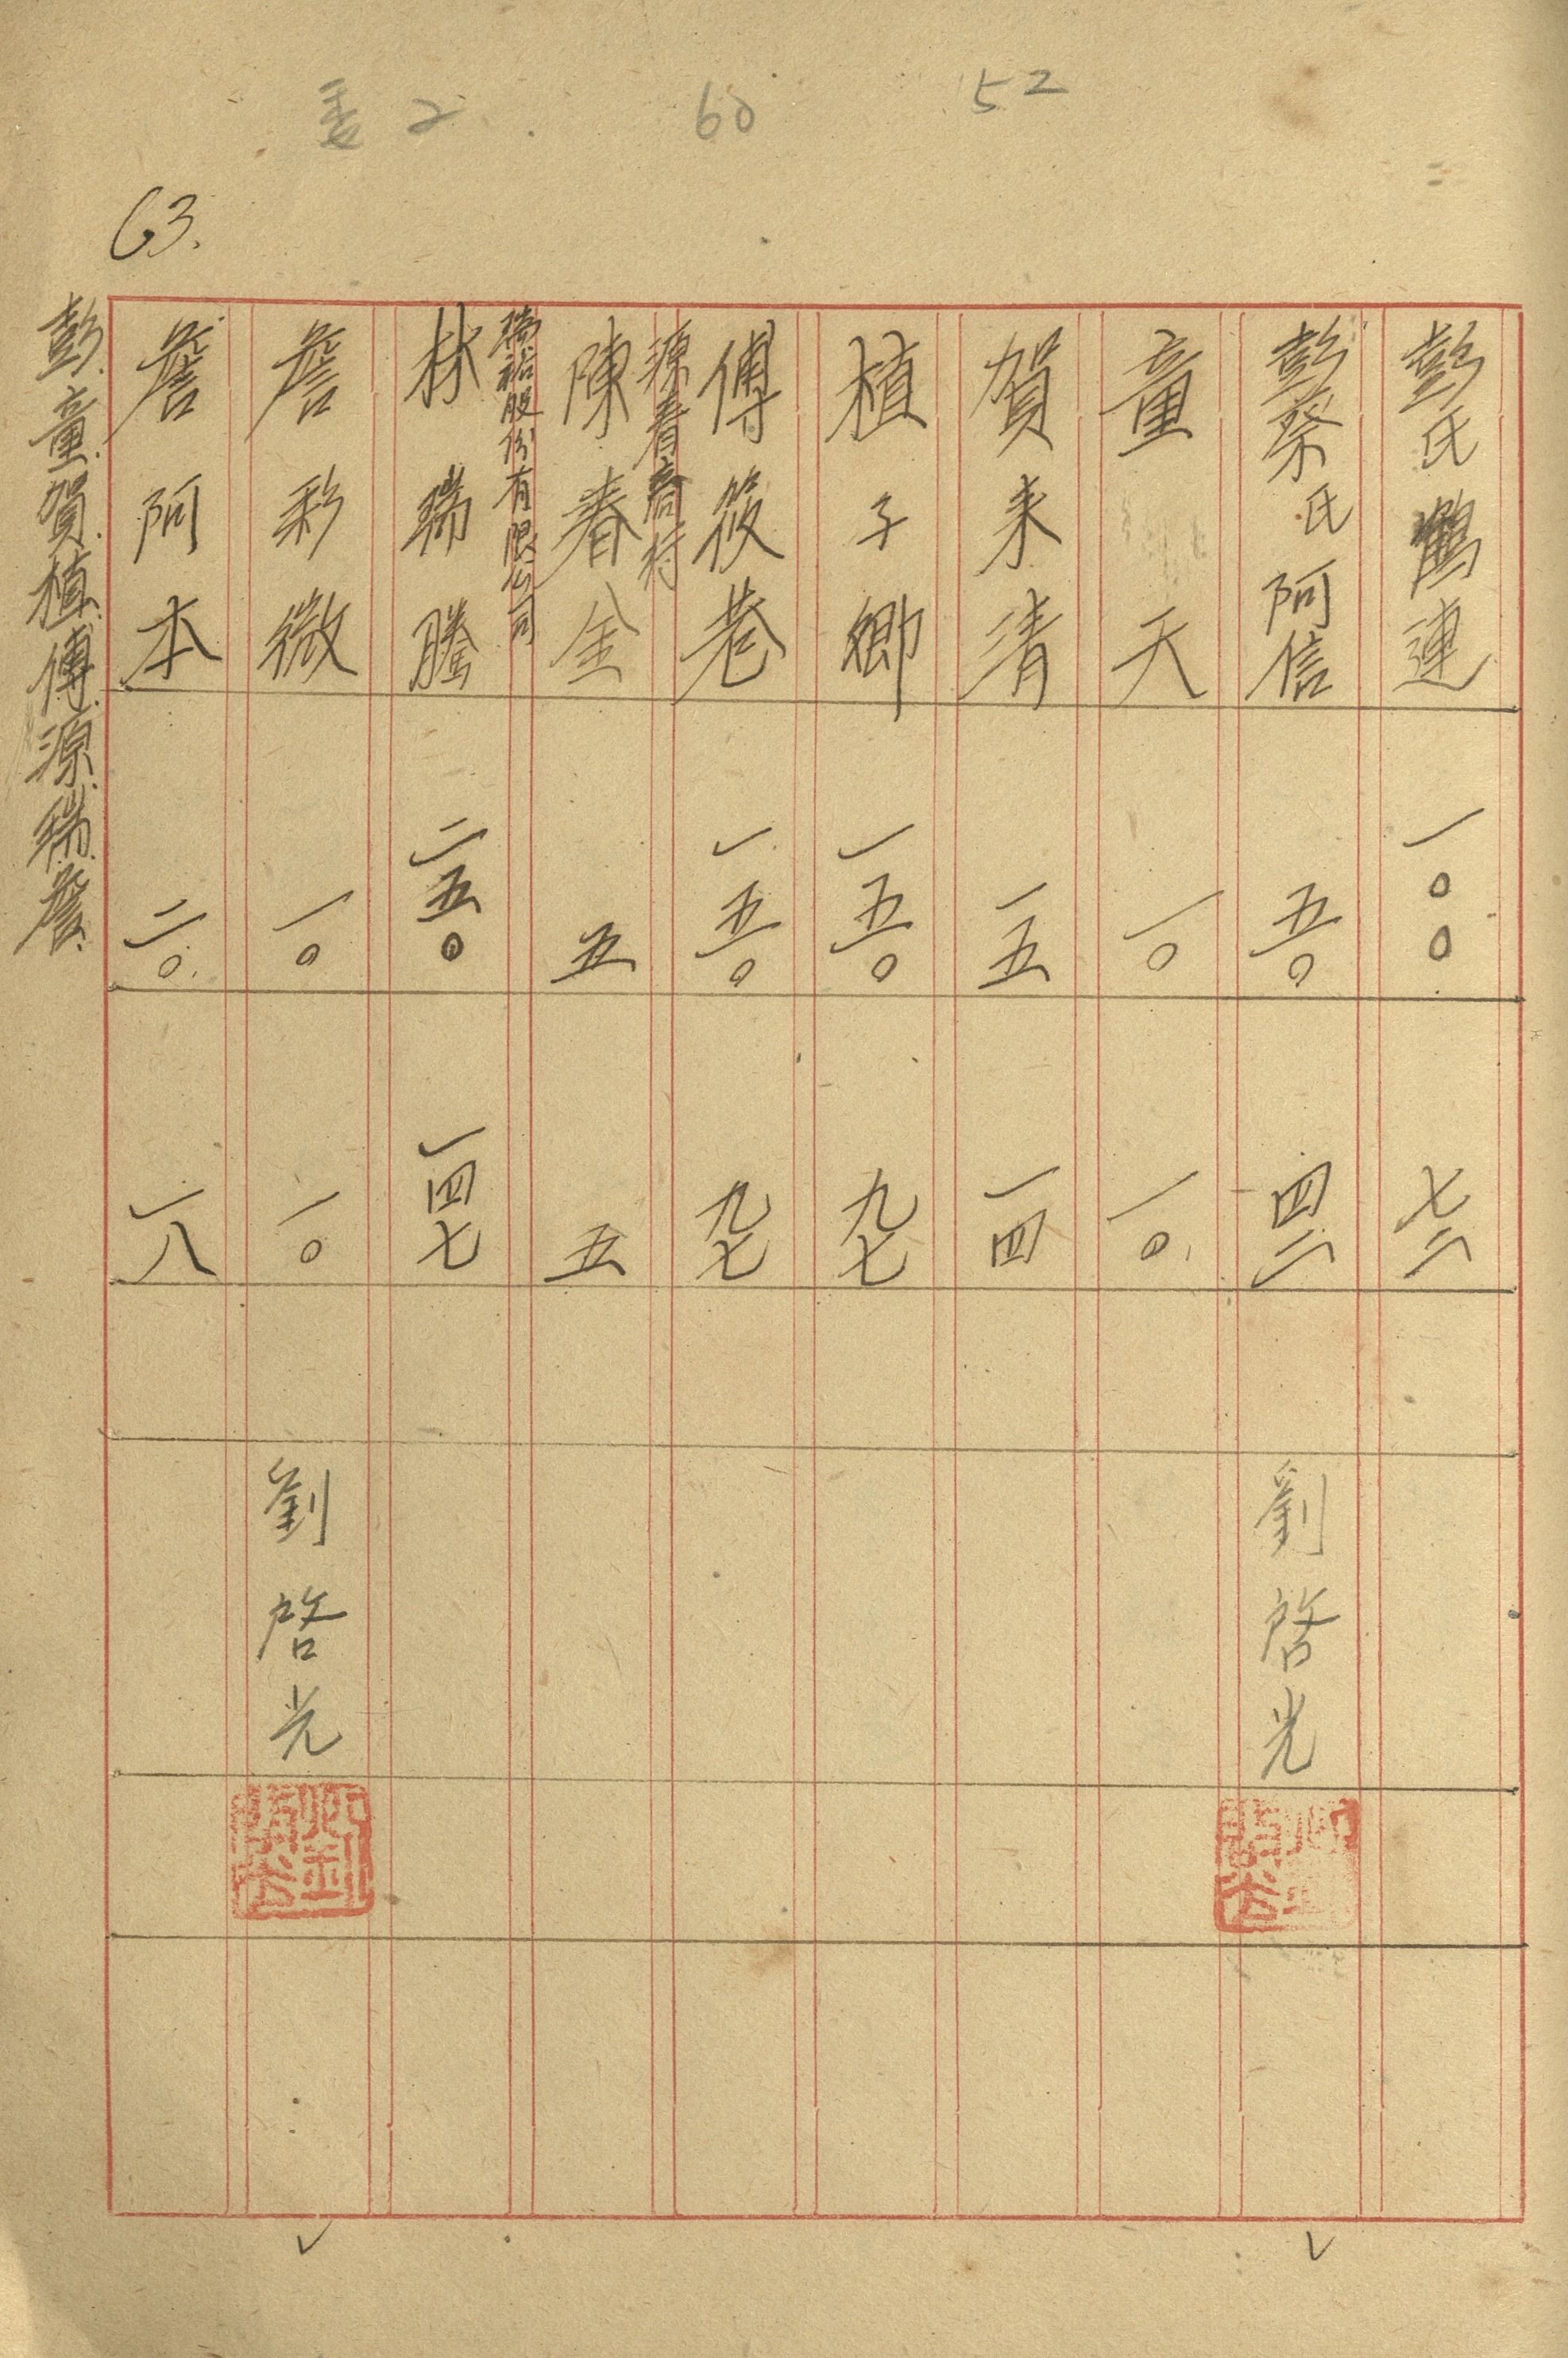 60
52
63.
彭氏鶴連 一〇〇 七二
彭蔡氏阿信 五〇 四二 劉啓光
童天 一〇 一〇
賀來清 一五 一四
植子卿 一五〇 九七
傅筱巷 一五〇 九七
源春商行
陳春金 五 五
瑞裕股份有限公司
林瑞騰 二五〇 一四七
詹彩微 一〇 一〇 劉啓光
詹阿本 二〇 一八
彭.童.賀.植.傅.源.瑞.詹.